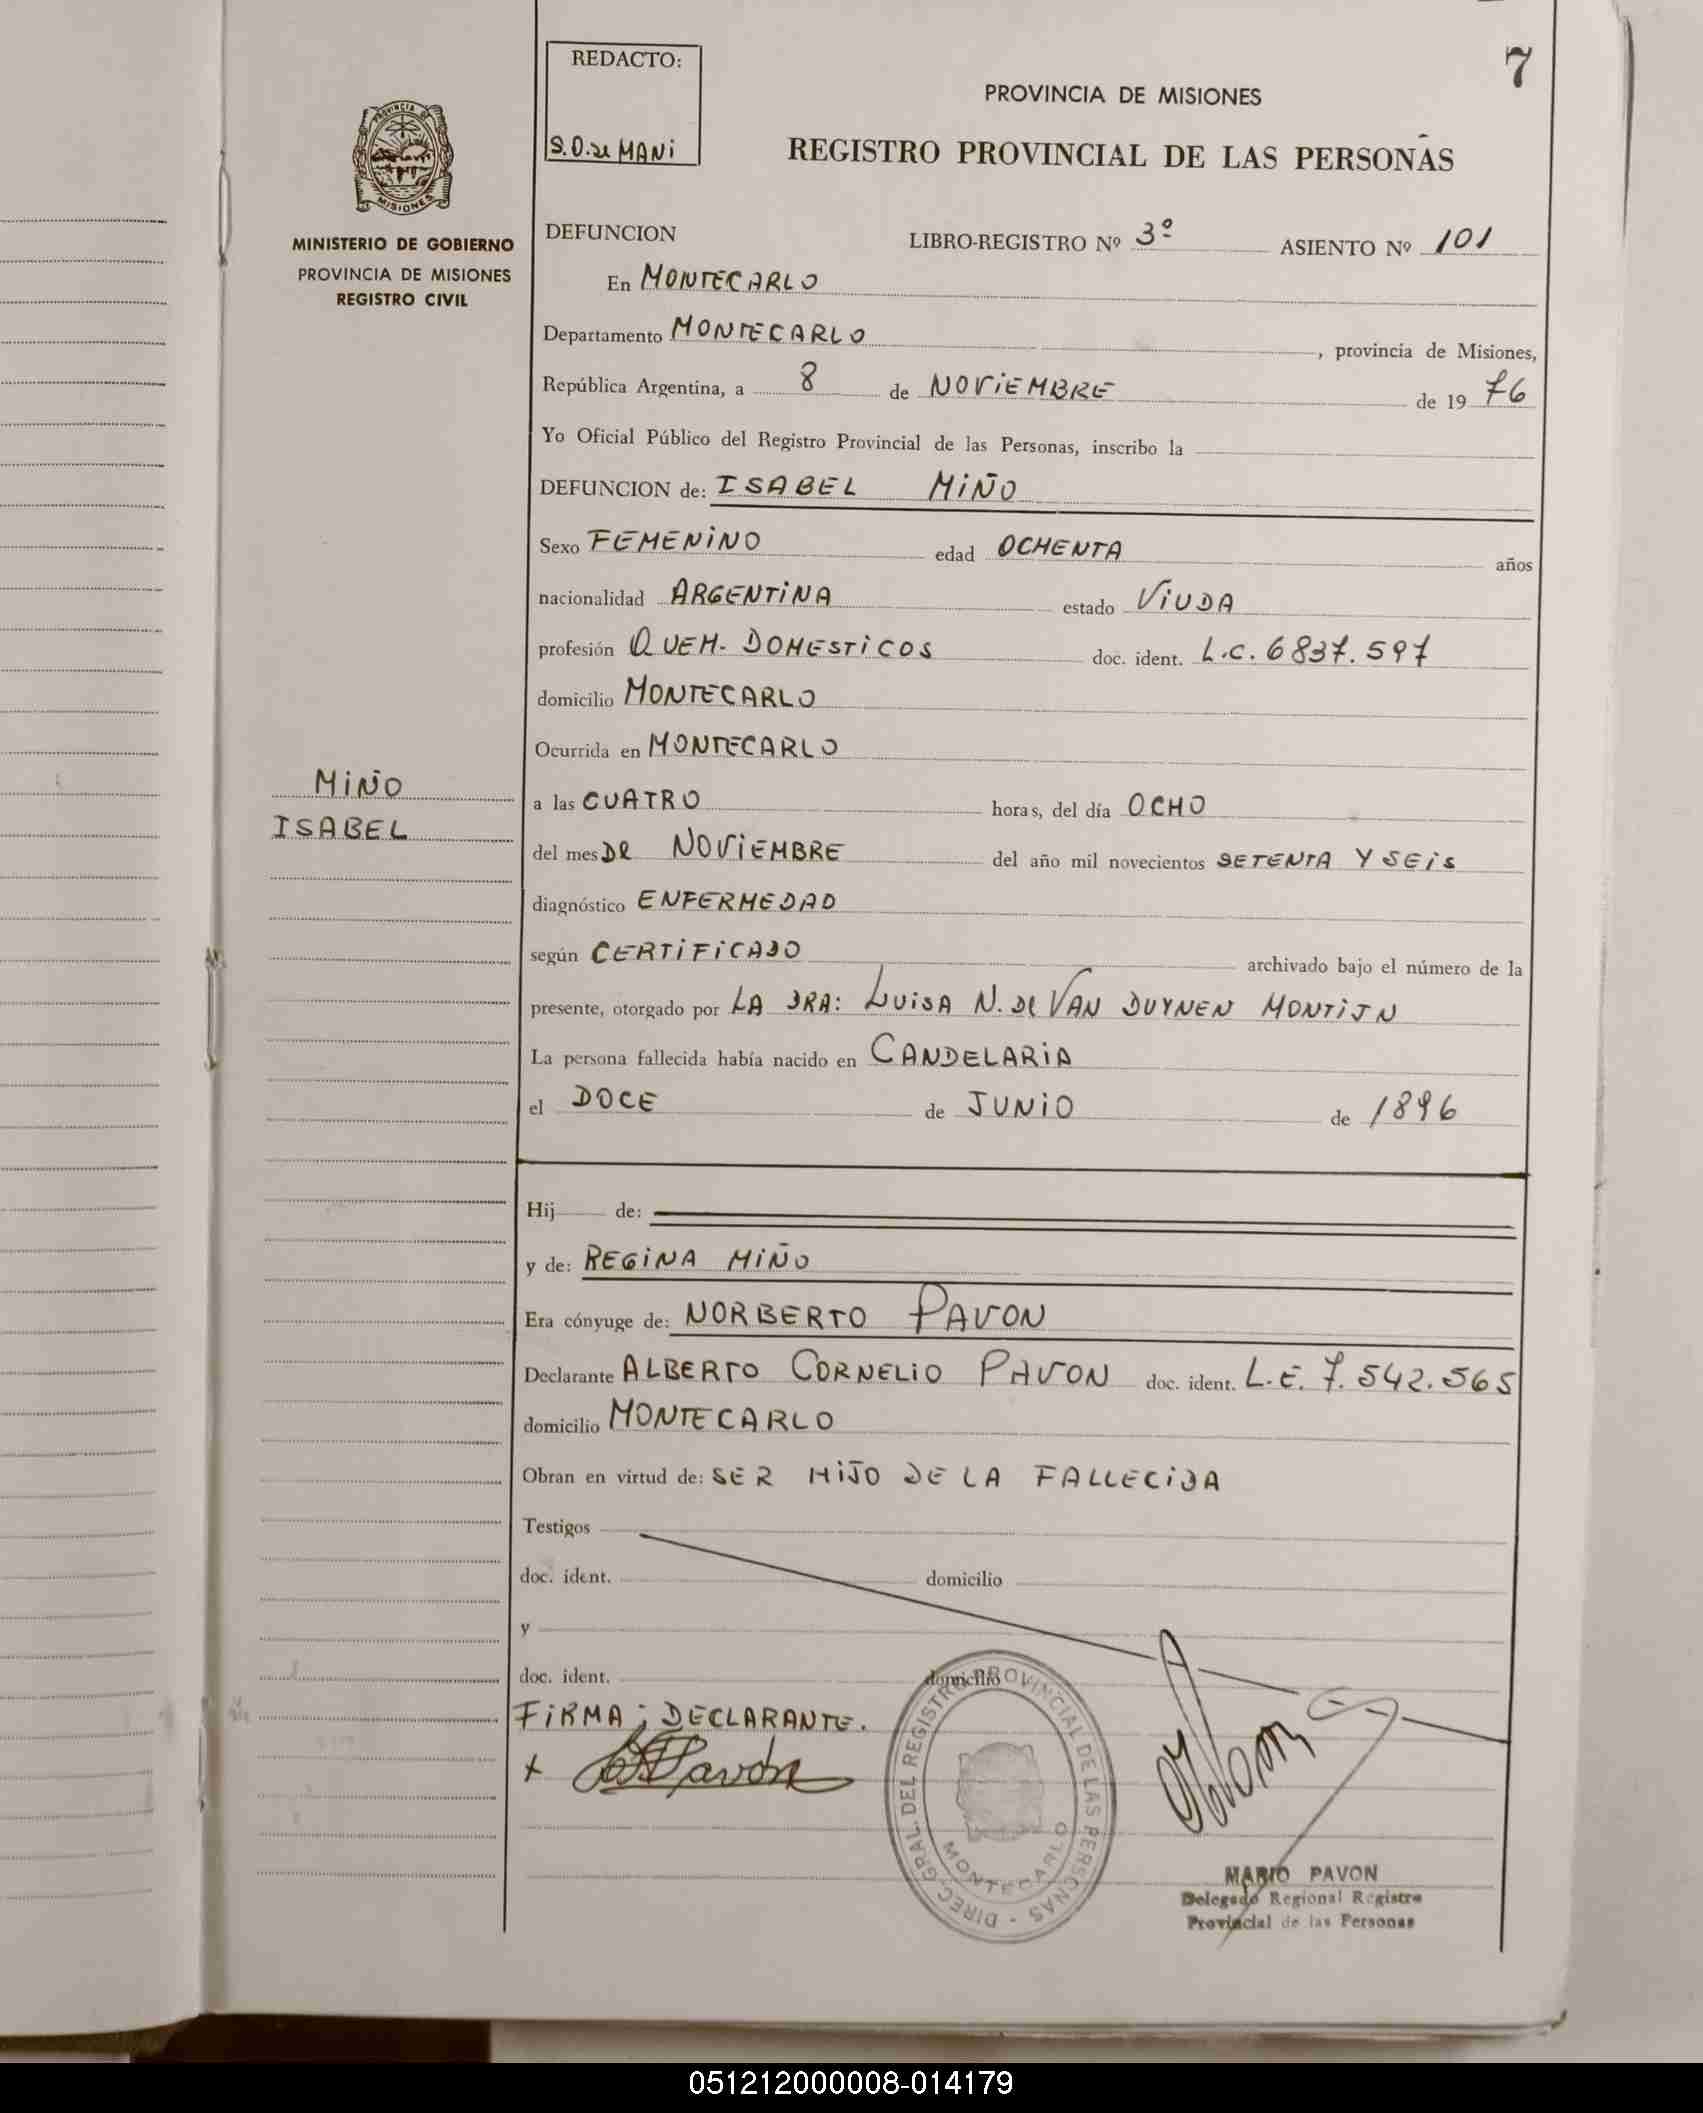 7
REDACTO:
S.O. de MANI
PROVINCIA DE MISIONES
REGISTRO PROVINCIAL DE LAS PERSONAS
PROVINCIA DE
MISIONES
MINISTERIO DE GOBIERNO
PROVINCIA DE MISIONES
REGISTRO CIVIL
DEFUNCION LIBRO-REGISTRO Nº 3º ASIENTO Nº 101
En MONTECARLO
Departamento MONTECARLO , provincia de Misiones,
República Argentina, a 8 de NOVIEMBRE de 19 76
Yo Oficial Público del Registro Provincial de las Personas, inscribo la
DEFUNCION de: ISABEL MIÑO
Sexo FEMENINO edad OCHENTA años
nacionalidad ARGENTINA estado VIUDA
profesión QUEH. DOMESTICOS doc. ident. L.C. 6837.597
domicilio MONTECARLO
Ocurrida en MONTECARLO
MIÑO
ISABEL
a las CUATRO horas, del día OCHO
del mes DE NOVIEMBRE del año mil novecientos SETENTA Y SEIS
diagnóstico ENFERMEDAD
según CERTIFICADO archivado bajo el número de la
presente, otorgado por LA DRA: LUISA N. DE VAN DUYNEN MONTIJN
La persona fallecida había nacido en CANDELARIA
el DOCE de JUNIO de 1896
Hij de:
y de: REGINA MIÑO
Era cónyuge de: NORBERTO PAVON
Declarante ALBERTO CORNELIO PAVON doc. ident. L.E. 7.542.565
domicilio MONTECARLO
Obran en virtud de: SER HIJO DE LA FALLECIDA
Testigos
doc. ident. domicilio
y
doc. ident. domicilio
FIRMA; DECLARANTE.
+ Pavón
DIREC. GRAL. DEL REGISTRO PROVINCIAL DE LAS PERSONAS -
MONTECARLO
MARIO PAVON
Delegado Regional Registro
Provincial de las Personas
051212000008-014179